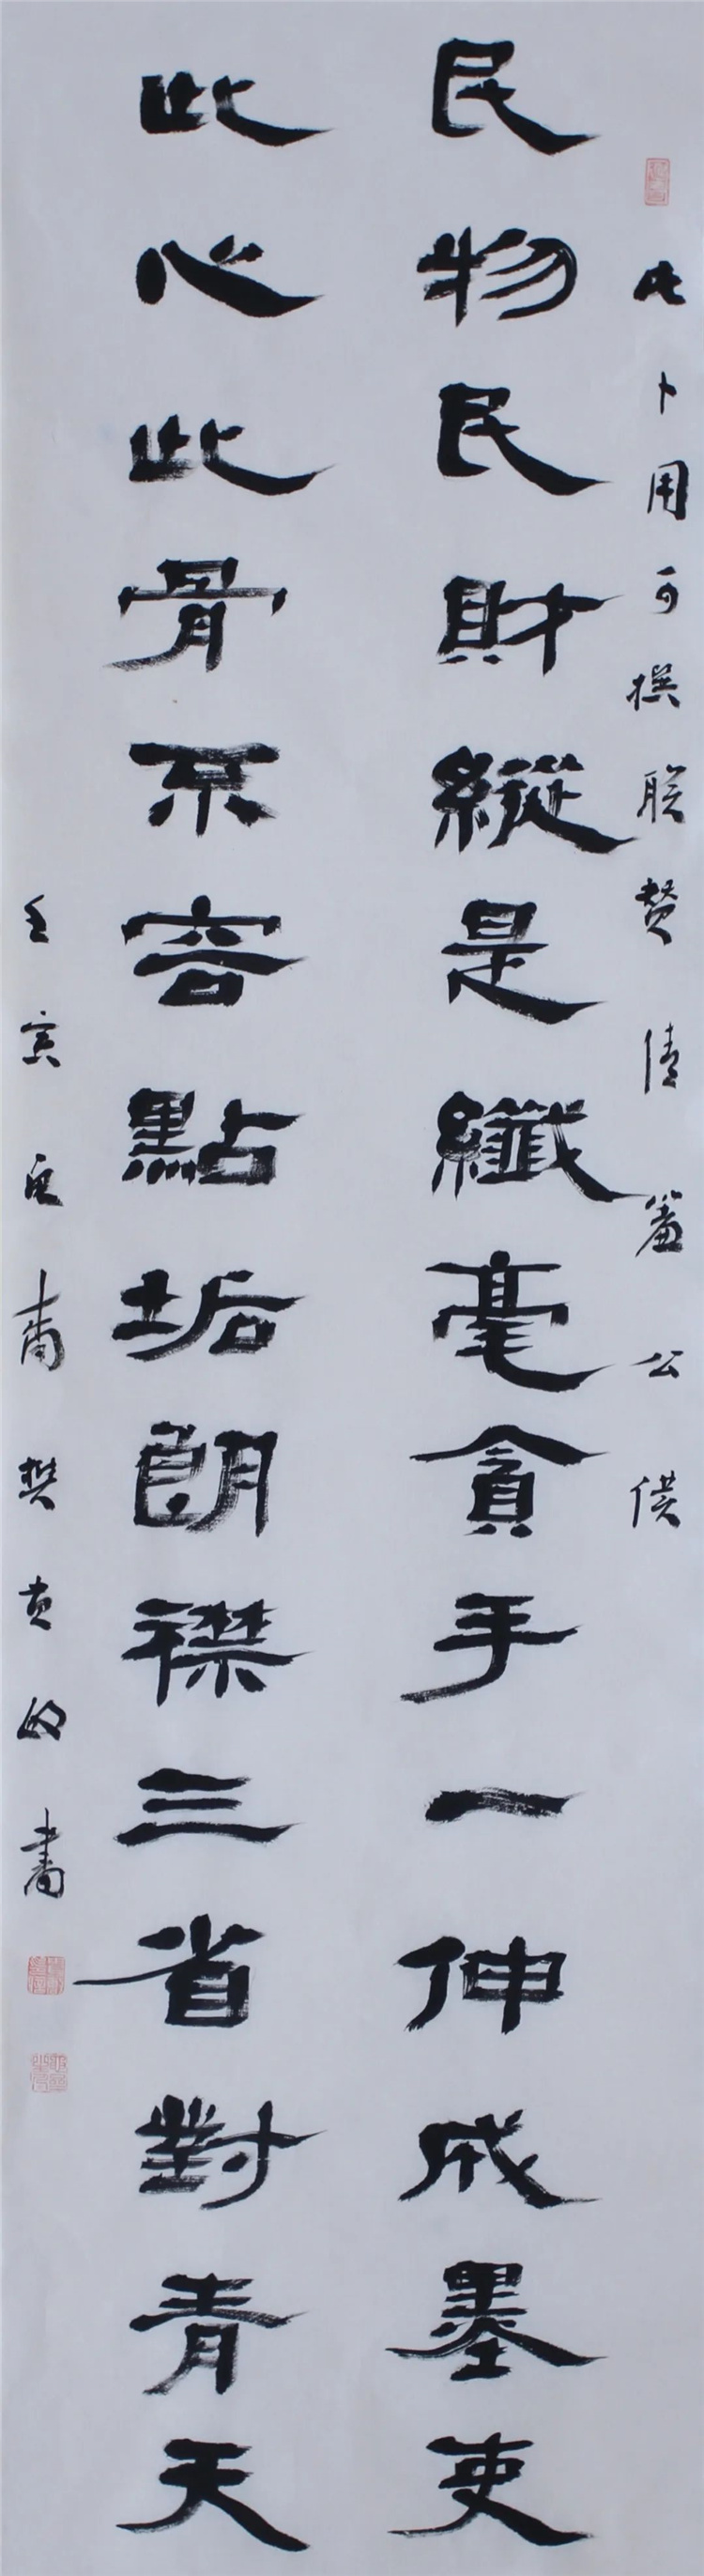 卜用可撰联赞清廉公僕
民物民財縱是纖毫貪手一伸成墨吏
此心此骨不容點垢朗襟三省對青天
壬寅樊書